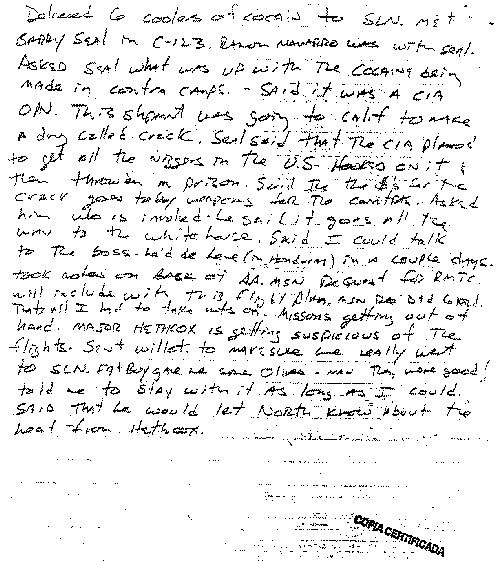 Delivered 6 coolers of cocain to SLN. Met
BARRY Seal in C-123. Ramon NAVARRO was with seal.
ASKED Seal what was up with the cocaine being
made in contra camps. - Said it was a CIA
OPN. This shipmant was going to calif to make
a drug called crack. Seal said that the CIA planned
to get all the niggers in the U.S. HOOKED on it &
then throw in prison. Said the $'s for the
crack goes to buy weapons for the contras. Asked
him who is involed - he said it goes all the
way to the whitehouse. Said I could talk
to the Boss - he'd be here (in Honduras) in a couple days.
took notes on BACK of AA. MSN Request for
will include with this flight
That's all I had to take notes on. Missons getting out of
hand. MAJOR HETHCOX is getting suspicious of the
flights. Sent willet to make sure we really went
to SLN. FAT Boy gave me some Olives - man they were good!
told me to stay with it as long as I could.
SAID that he would let NORTH KNOW about the
heat from Hethcox.
COPIA CERTIFICADA